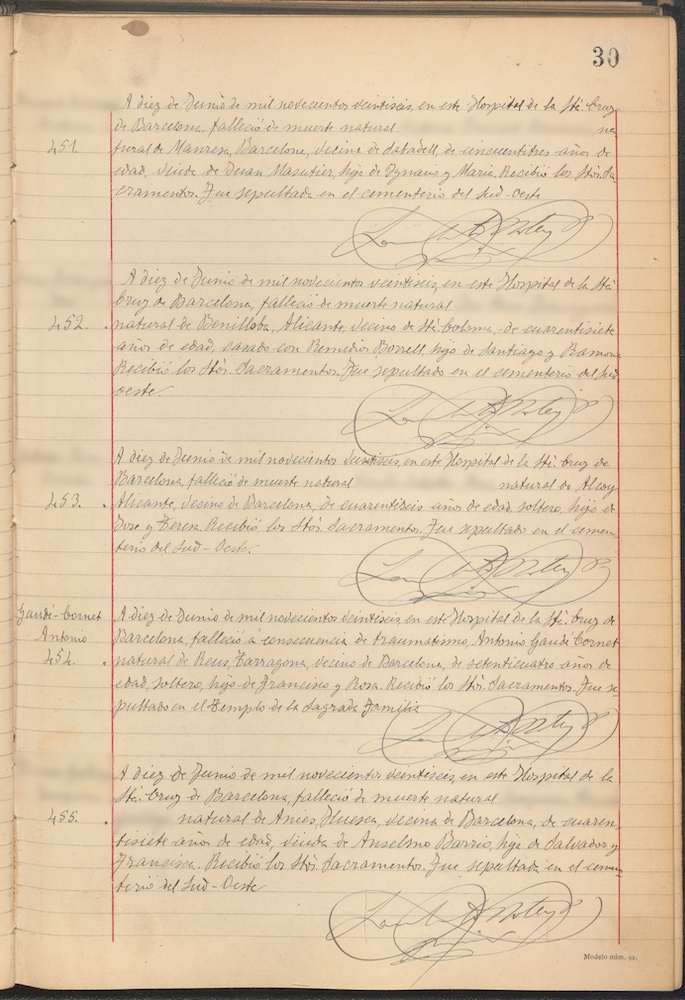 30
A diez de Junio de mil novecientos veintiseis, en este Hospital de la Sta. Cruz
de Barcelona, falleció de muerte natural na
451.
tural de Manresa, Barcelona, vecina de Sabadell, de cincuentitres años de
edad, viuda de Juan Masutier, hija de Ygnacio y Maria. Recibió los Stos. Sa
cramentos. Fue sepultada en el cementerio del Sud-oeste
A diez de Junio de mil novecientos veintiseis, en este Hospital de la Sta.
Cruz de Barcelona, falleció de muerte natural
452.
natural de Benilloba, Alicante, vecino de Sta. Coloma, de cuarentisiete
años de edad, casado con Remedios Borrell, hijo de Santiago y Ramona
Recibió los Stos. Sacramentos. Fue sepultado en el cementerio del Sud
oeste.
A diez de Junio de mil novecientos veintiseis, en este Hospital de la Sta. Cruz de
Barcelona, falleció de muerte natural natural de Alcoy
453.
Alicante, vecino de Barcelona, de cuarentiseis años de edad, soltero, hijo de
Jose y Teresa. Recibió los Stos. Sacramentos. Fue sepultado en el cemen
terio del Sud-Oeste.
Gaudí-Cornet
Antonio
454.
A diez de Junio de mil novecientos veintiseis, en este Hospital de la Sta. Cruz de
Barcelona, falleció a consecuencia de traumatismo, Antonio Gaudí Cornet
natural de Reus, Tarragona, vecino de Barcelona, de setenticuatro años de
edad, soltero, hijo de Francisco y Rosa. Recibió los Stos. Sacramentos. Fue se
pultado en el Templo de la Sagrada Familia
A diez de Junio de mil novecientos veintiseis, en este Hospital de la
Sta. Cruz de Barcelona, falleció de muerte natural
455.
natural de Anies, Huesca, vecina de Barcelona, de cuaren
tisiete años de edad, viuda de Anselmo Barrio, hija de Salvador y
Francisca. Recibió los Stos. Sacramentos. Fue sepultada en el cemen
terio del Sud-Oeste
Modelo núm.